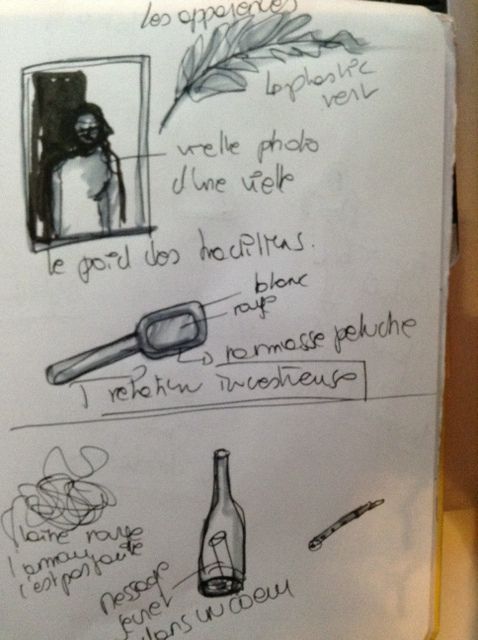 Les apparences
le plastic
vert
vielle photo
d'une vielle
le poid des traditions.
blanc
rouge
ramasse peluche
relation incestieuse
laine rouge
l'amour
c'est pas facile
Message
secret
dans un coeur